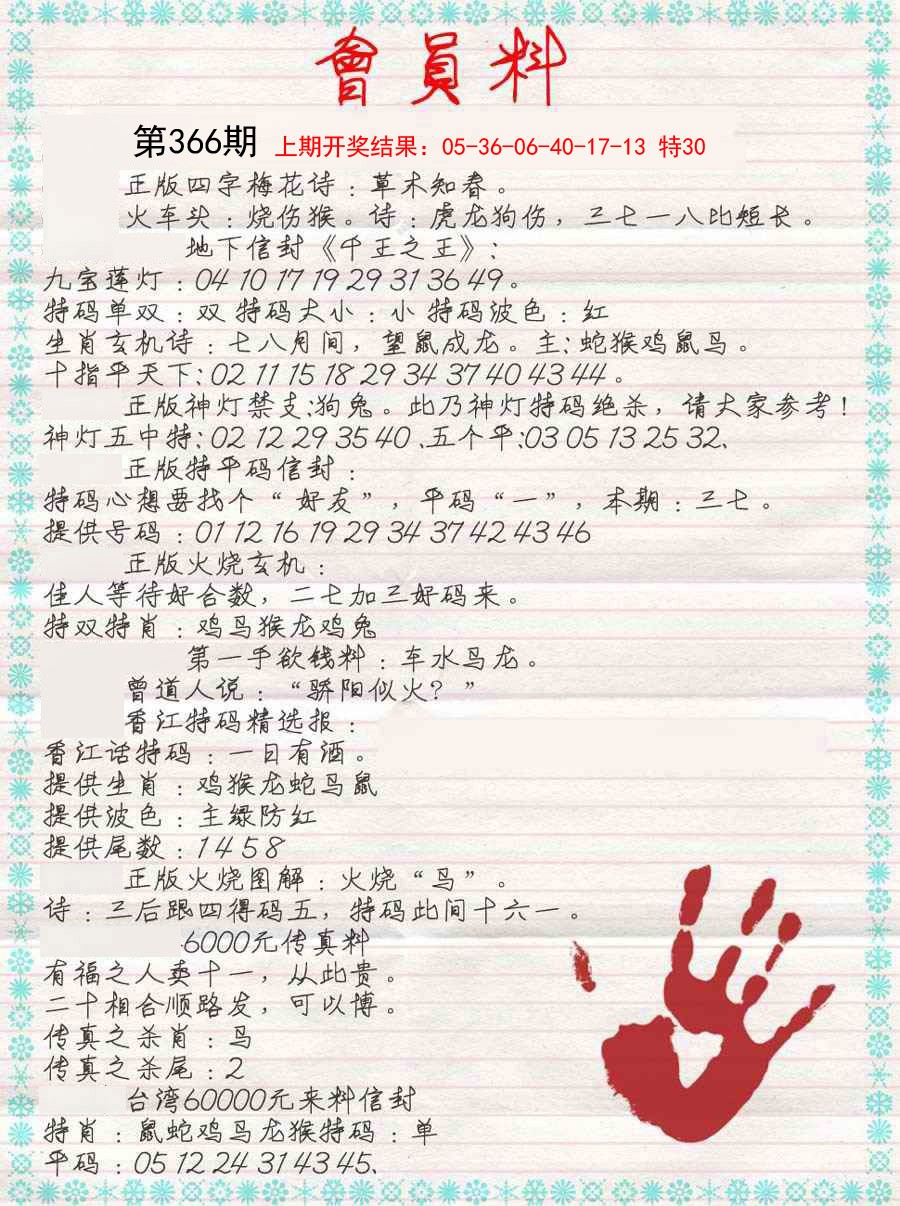 會員料
第366期 上期开奖结果：05-36-06-40-17-13 特30
正版四字梅花诗：草木知春。
火车头：烧伤猴。诗：虎龙狗伤，三七一八比短长。
地下信封《千王之王》：
九宝莲灯：04 10 17 19 29 31 36 49。
特码单双：双 特码大小：小 特码波色：红
生肖玄机诗：七八月间，望鼠成龙。主：蛇猴鸡鼠马。
十指平天下：02 11 15 18 29 34 37 40 43 44。
正版神灯禁支：狗兔。此乃神灯特码绝杀，请大家参考！
神灯五中特：02 12 29 35 40、五个平：03 05 13 25 32、
正版特平码信封：
特码心想要找个“好友”，平码“一”，本期：三七。
提供号码：01 12 16 19 29 34 37 42 43 46
正版火烧玄机：
佳人等待好合数，二七加三好码来。
特双特肖：鸡马猴龙鸡兔
第一手欲钱料：车水马龙。
曾道人说：“骄阳似火？”
香江特码精选报：
香江话特码：一日有酒。
提供生肖：鸡猴龙蛇马鼠
提供波色：主绿防红
提供尾数：1 4 5 8
正版火烧图解：火烧“马”。
诗：三后跟四得码五，特码此间十六一。
6000元传真料
有福之人卖十一，从此贵。
二十相合顺路发，可以博。
传真之杀肖：马
传真之杀尾：2
台湾60000元来料信封
特肖：鼠蛇鸡马龙猴特码：单
平码：05 12 24 31 43 45、